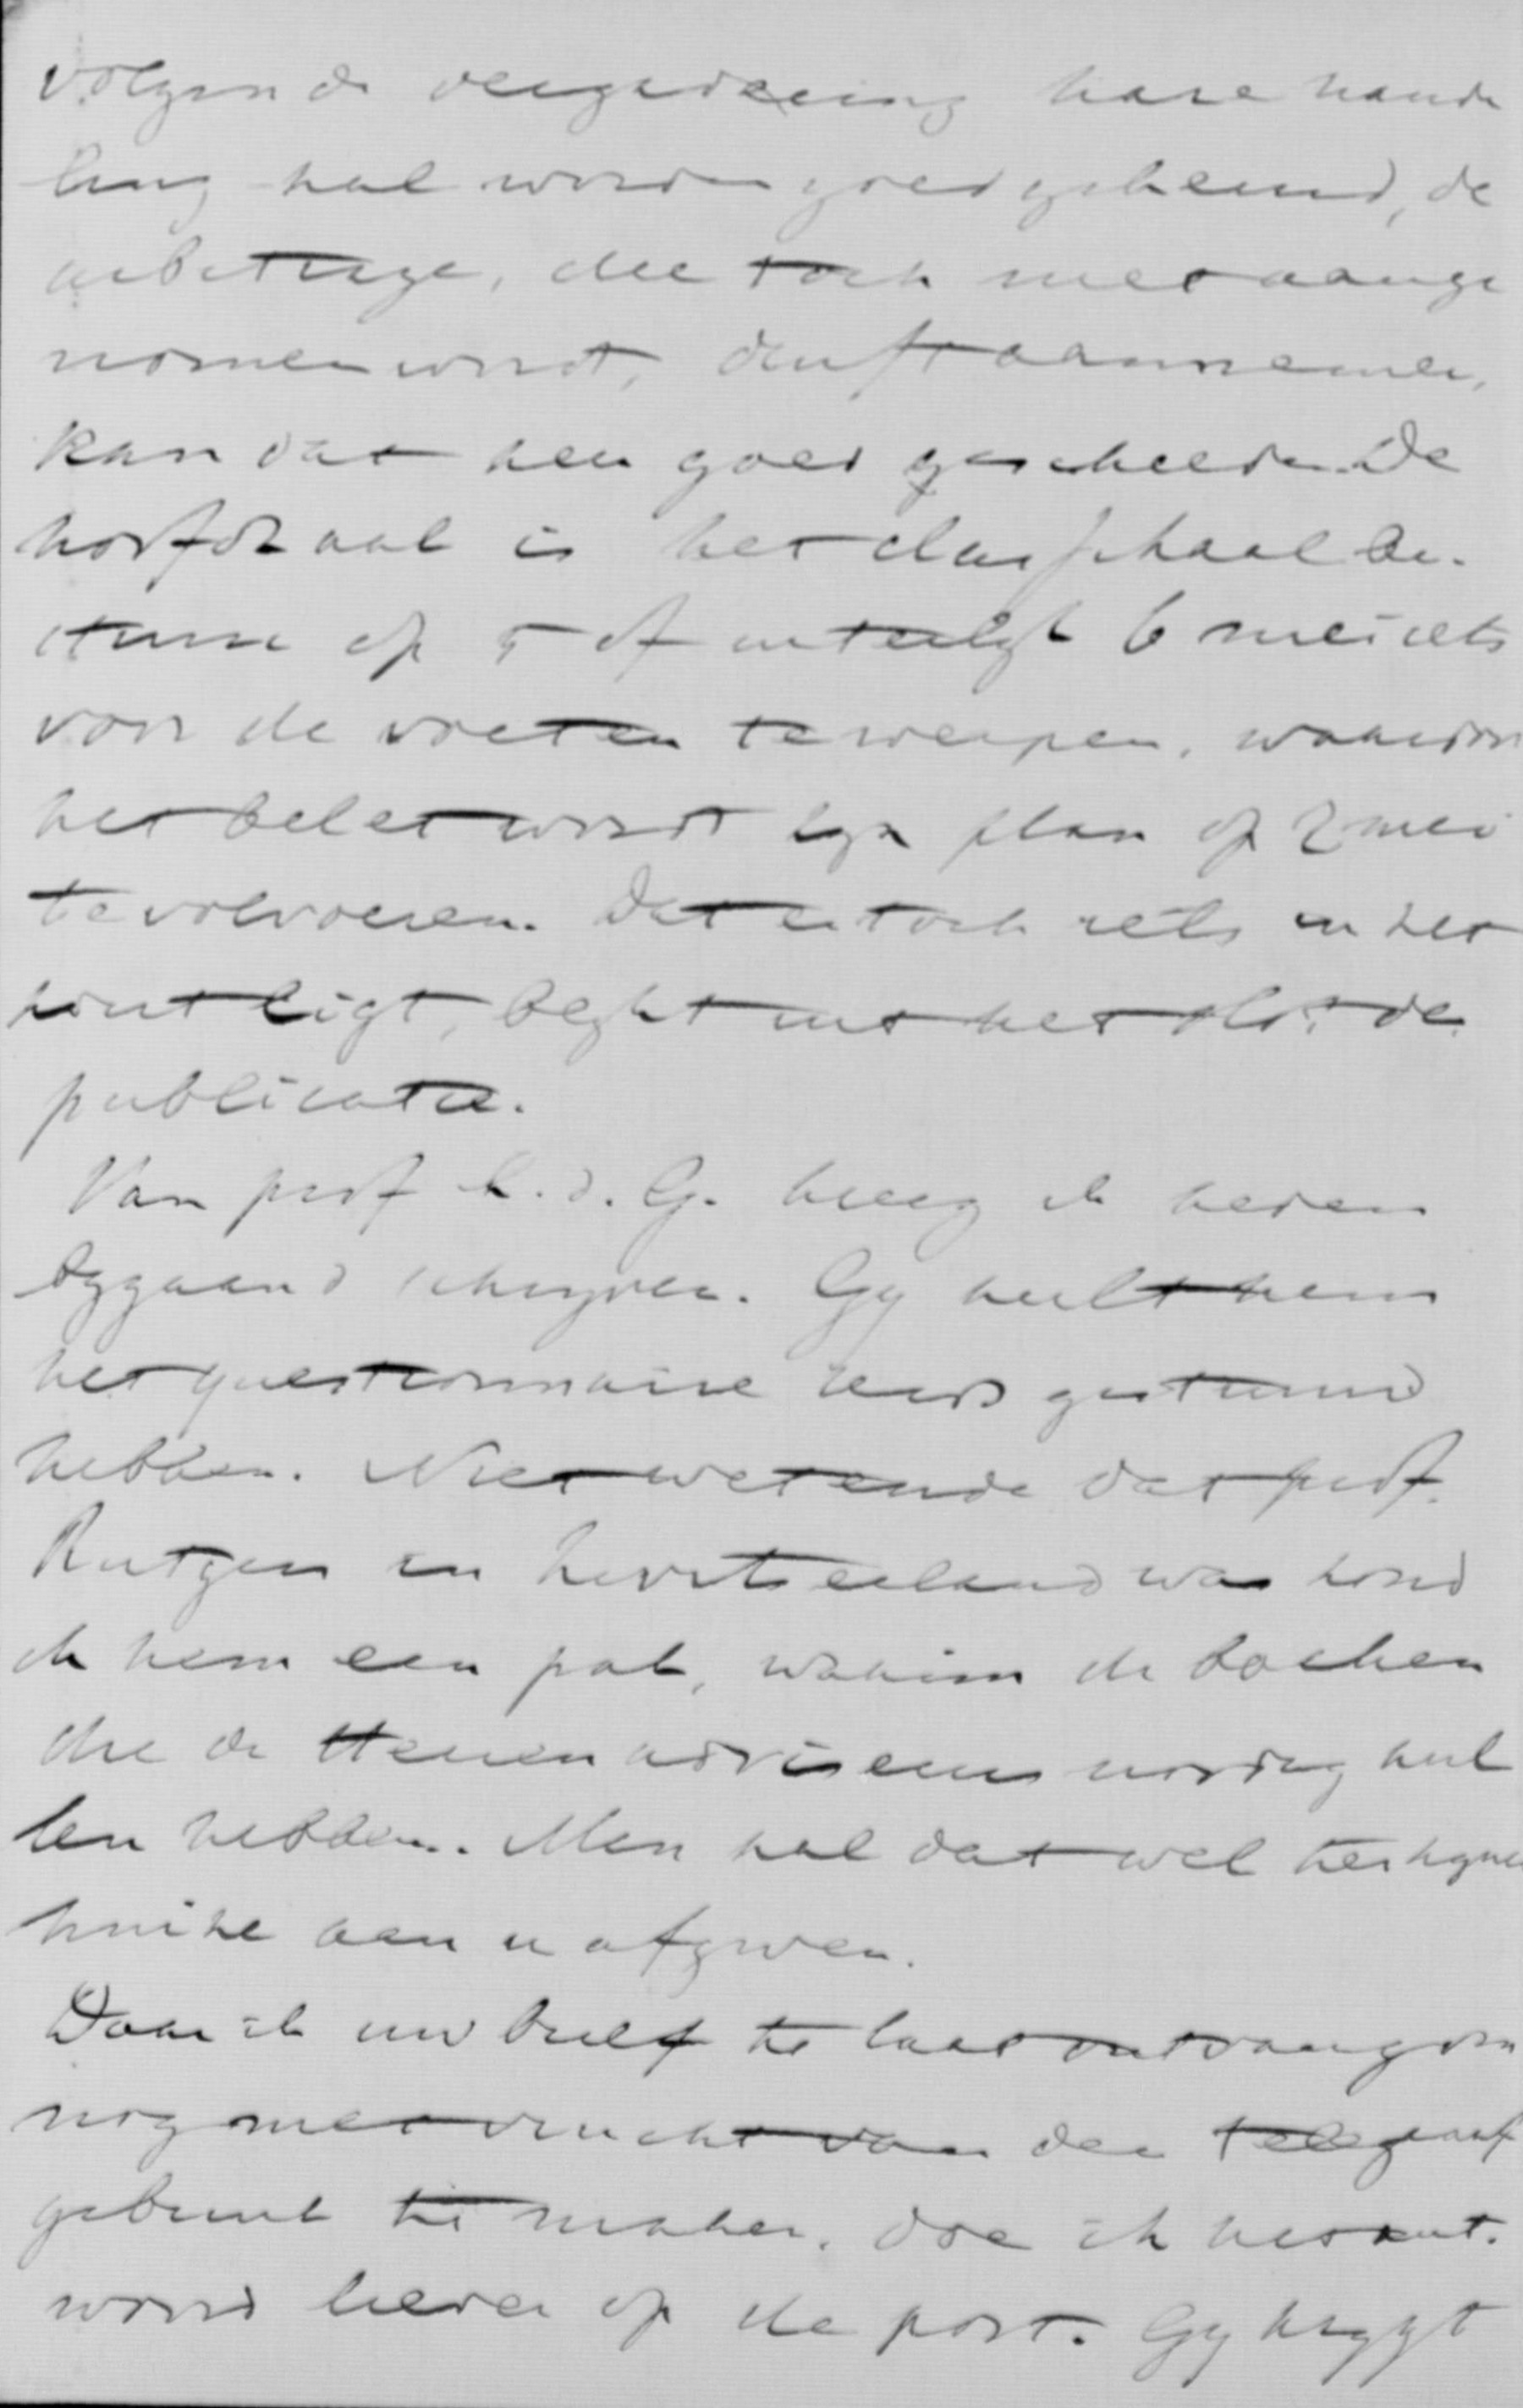 volgende vergadering hare hande
ling zal worden goedgekeurd, de
arbitrage, die toch niet aange
nomen wordt, durft aannemen,
kan dat zeer goed geschieden. De
hoofdzaak is het classikaal be-
stuur op 5 of uiterlijk 6 mei iets
voor de voeten te werpen, waardoor
het belet wordt zijn plan op 7 mei
te volvoeren. Dat er toch iets in het
zout ligt, blijkt uit het slot der
publicatie.
Van prof d. d. G. kreeg ik heden
bijgaand schrijven. Gij zult hem
het questionnaire reeds gestuurd
hebben. Niet wetende dat prof.
Rutgers in Zwitserland was zond
ik hem een pak, waarin de boeken
die de Heeren adviseurs noodig zul
len hebben. Men zal dat wel te zijnen
huize aan u afgeven.
Daar ik uw brief te laat ontvang om
nog met vrucht van den telegraaf
gebruik te maken, doe ik het ant-
woord liever op de post. Gij krijgt